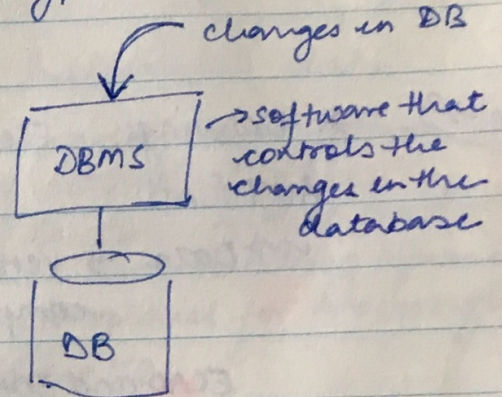 changes in DB
DBMS
→software that
controls the
changes in the
database
DB